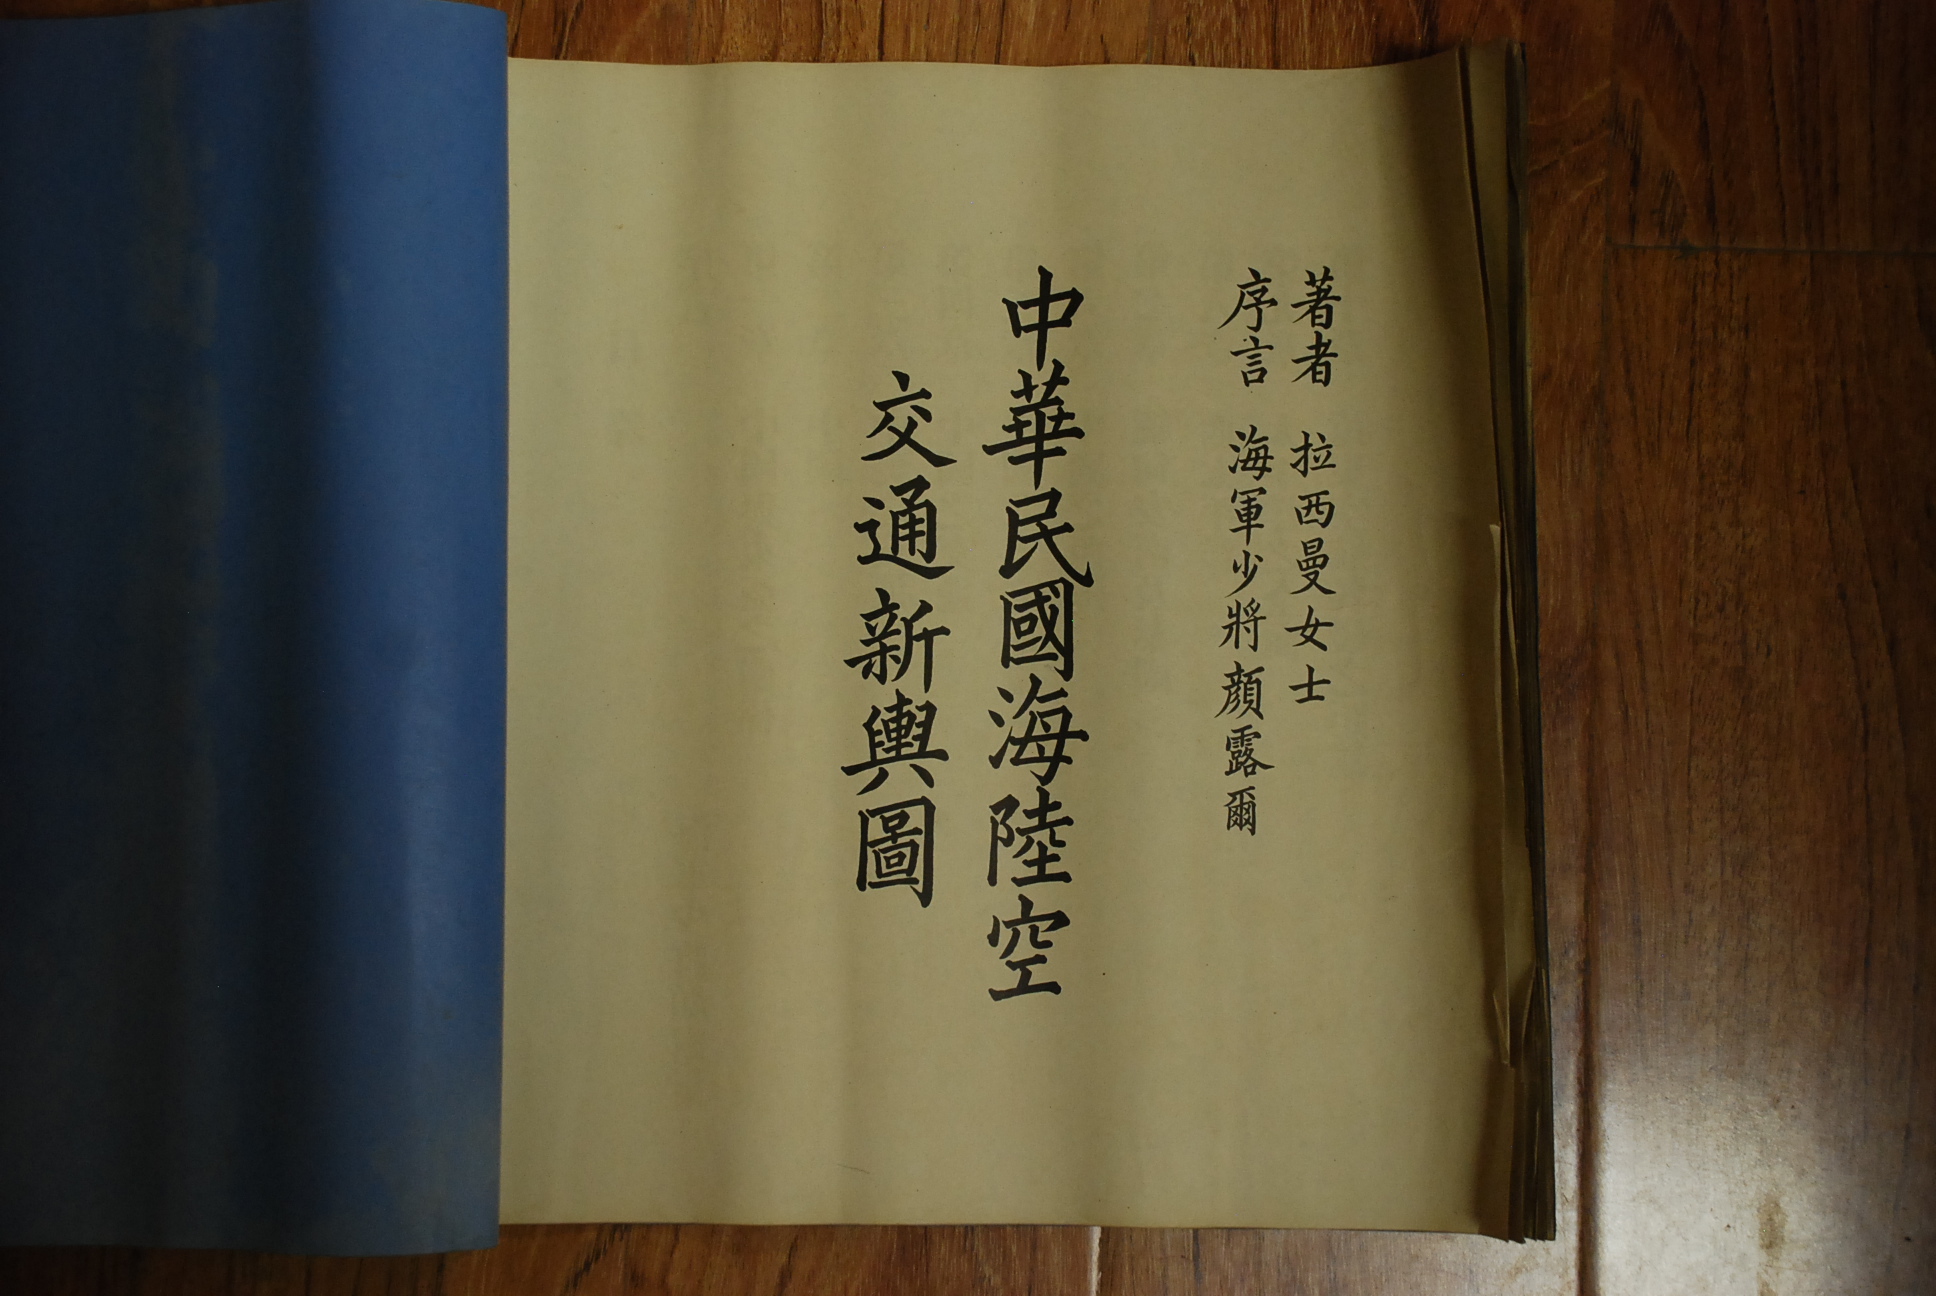 著者 拉西曼女士
序言 海軍少將顏露爾
中華民國海陸空
交通新輿圖